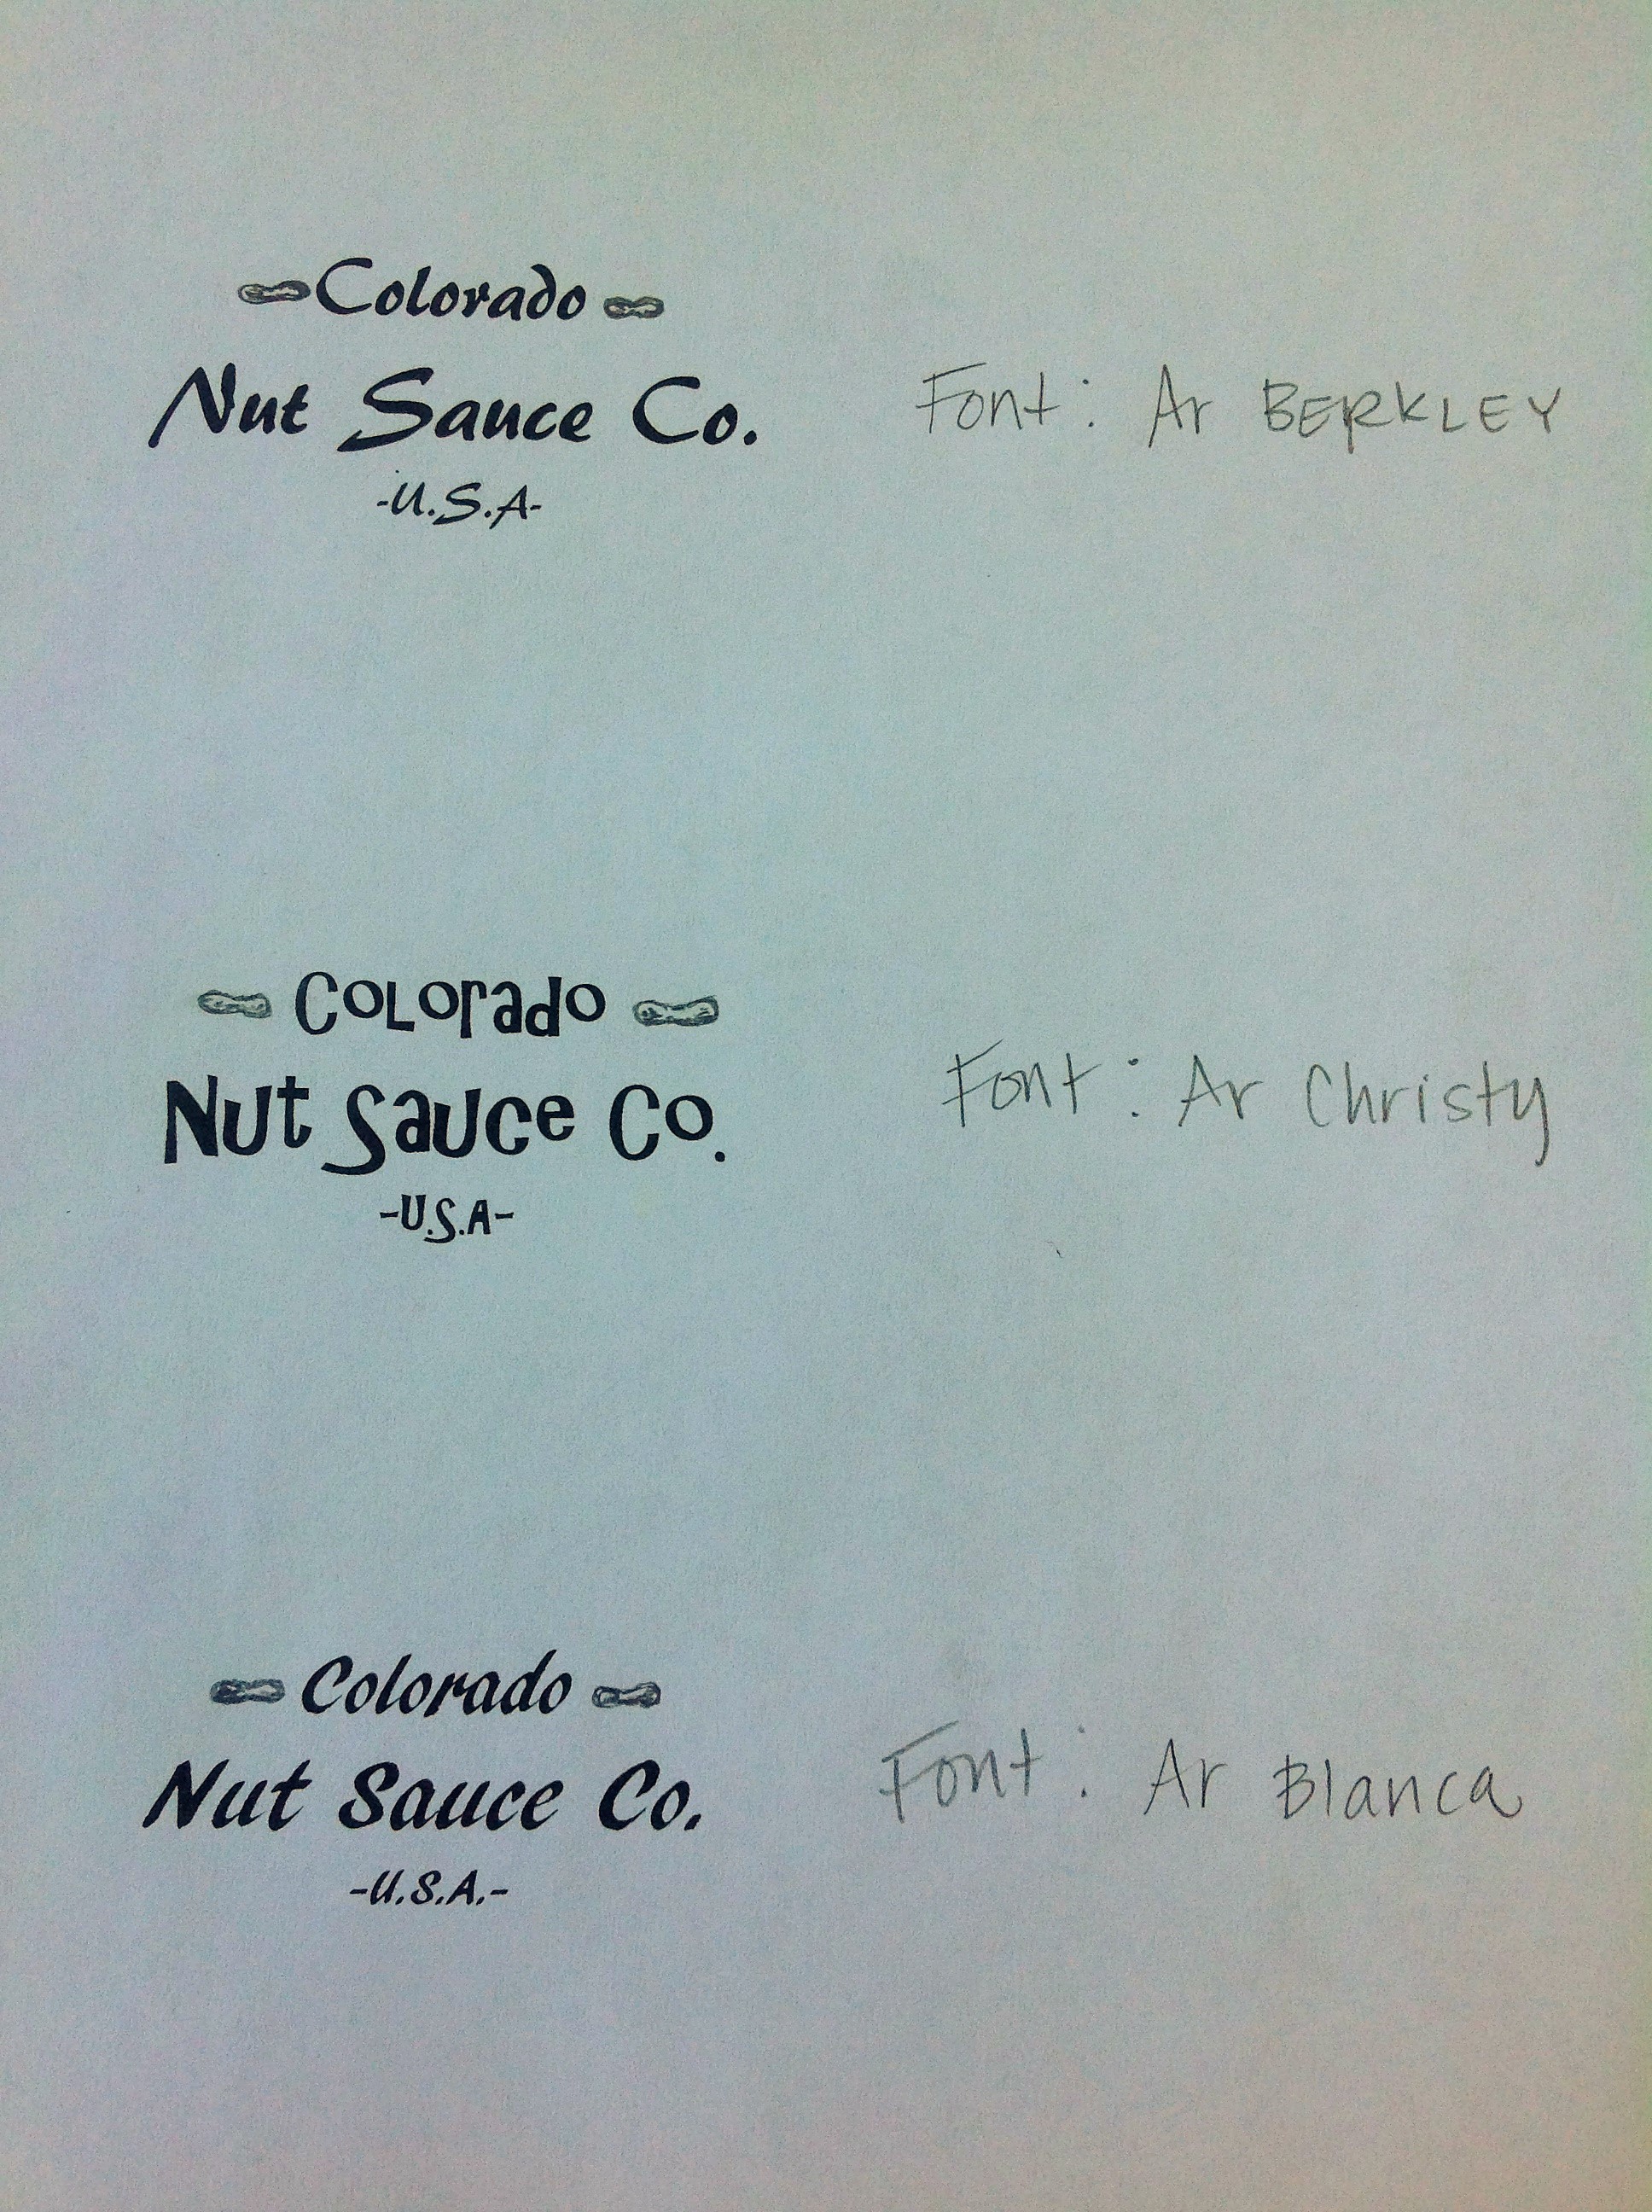 Colorado
Nut Sauce Co.
-U.S.A-
Font: Ar BERKLEY
Colorado
Nut Sauce Co.
-U.S.A-
Font: Ar Christy
Colorado
Nut Sauce Co.
-U.S.A.-
Font: Ar Blanca